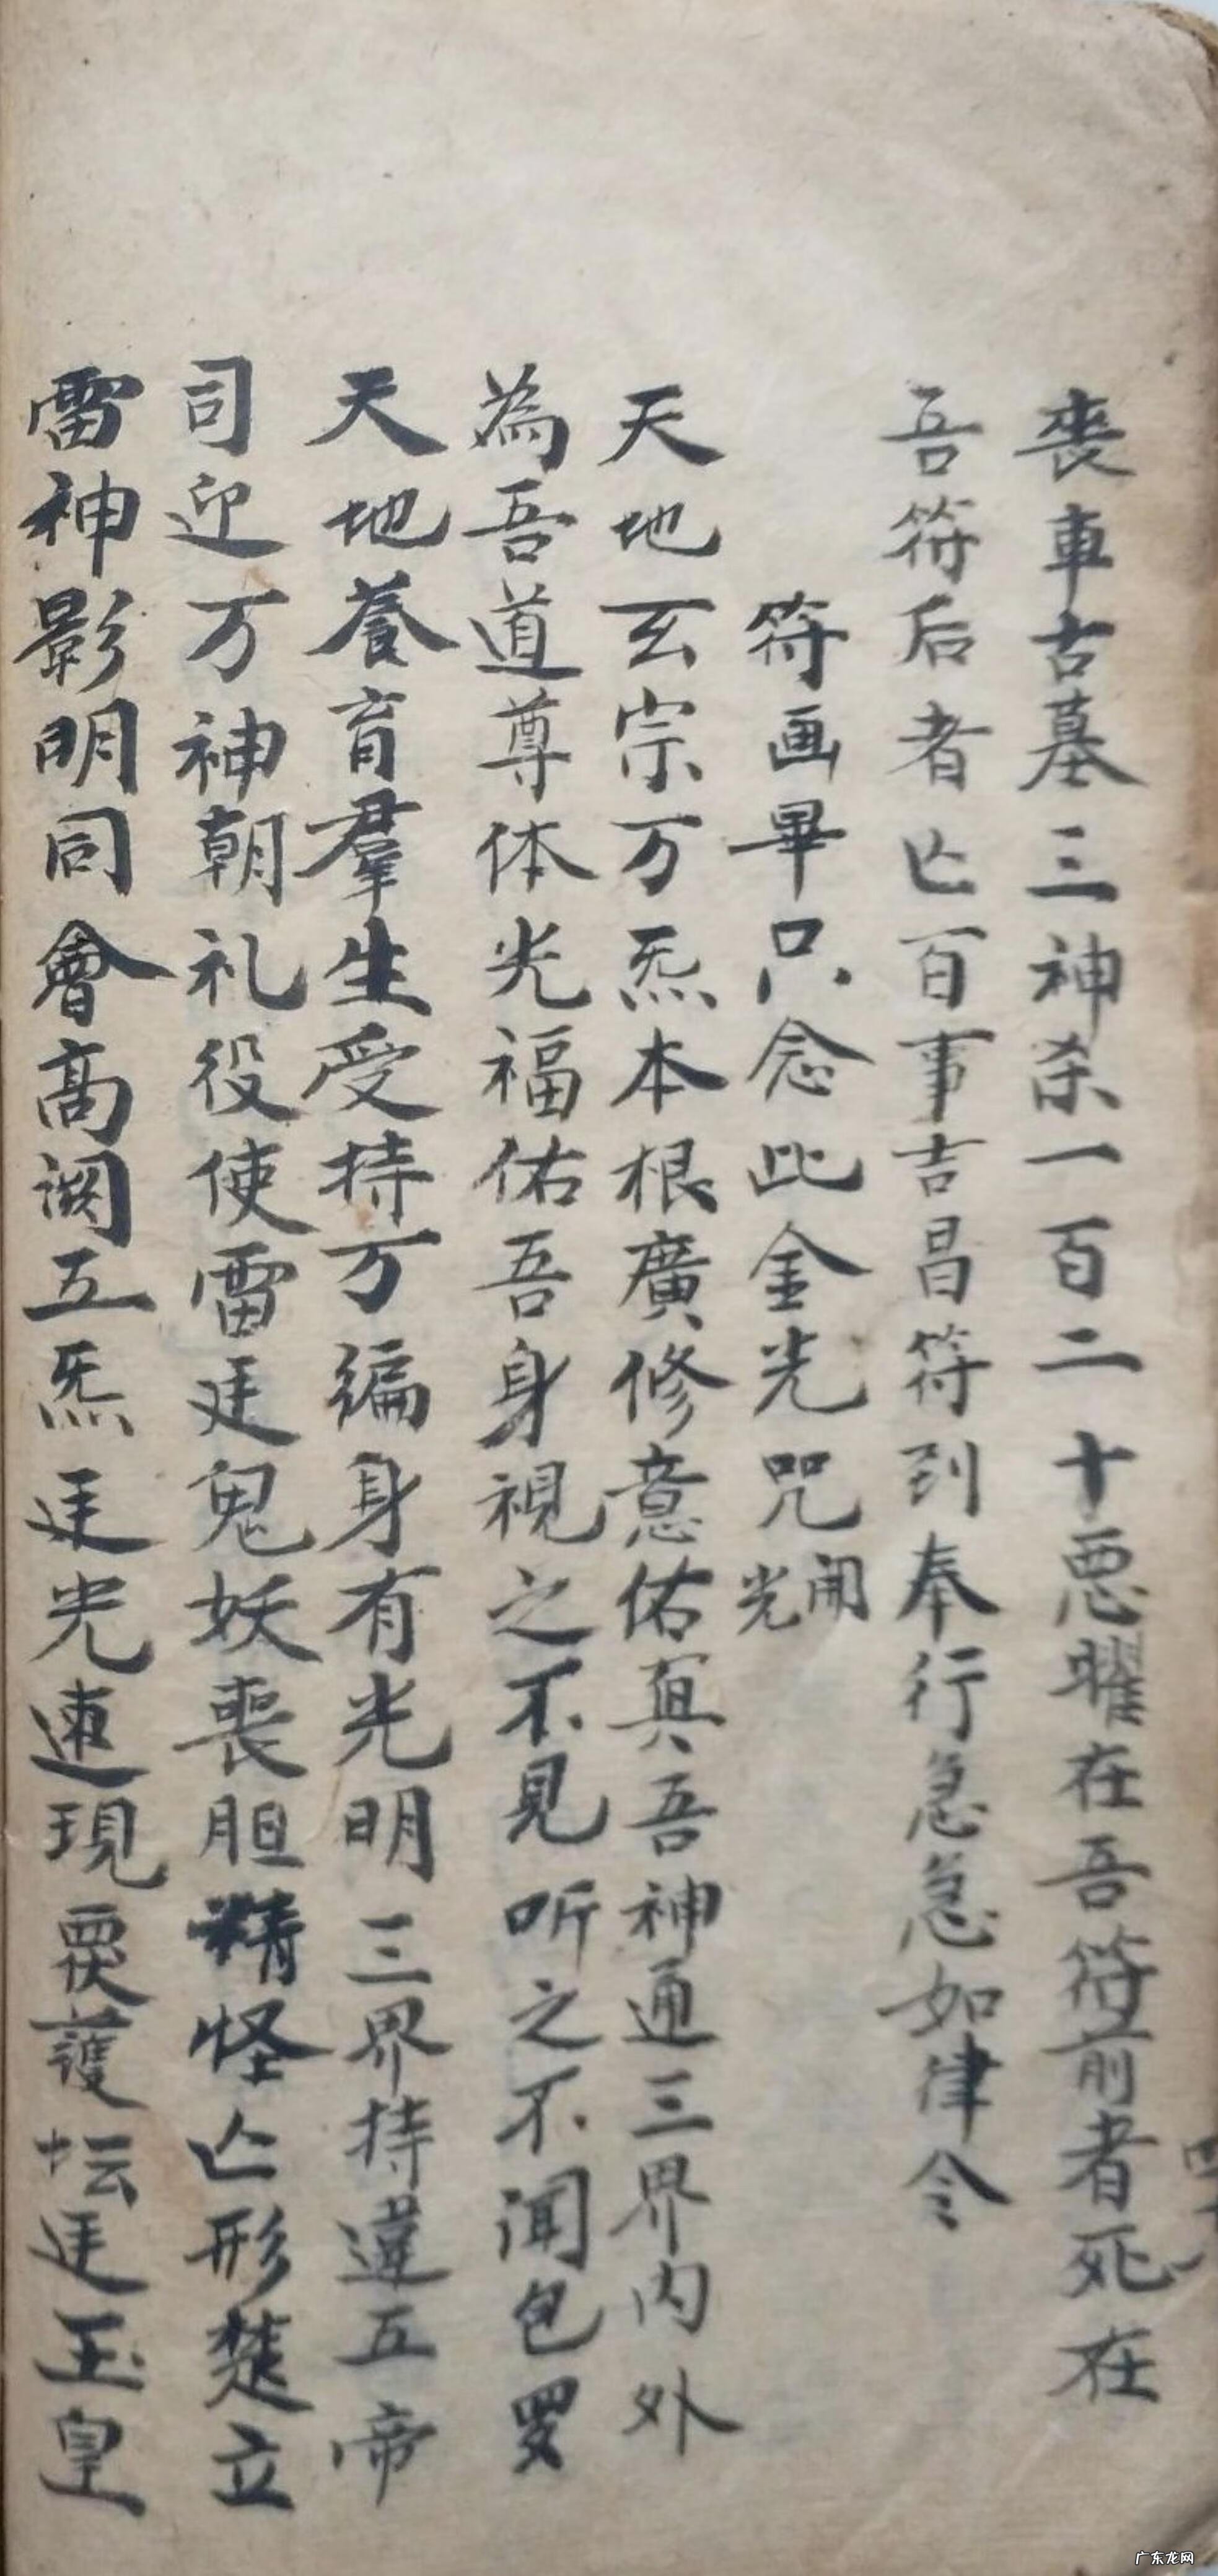 喪車古墓三神杀一百二十惡曜在吾符前者死在
吾符后者亡百事吉昌符到奉行急急如律令
符画畢只念此金光咒開光
天地玄宗万炁本根廣修意佑真吾神通三界内外
為吾道尊体光福佑吾身視之不見听之不闻包罗
天地養育羣生受持万徧身有光明三界持違五帝
司迎万神朝礼役使雷廷鬼妖喪胆精怪亡形楚立
雷神影明同會高闕五炁廷光速現覆護坛廷玉皇
广东龙网